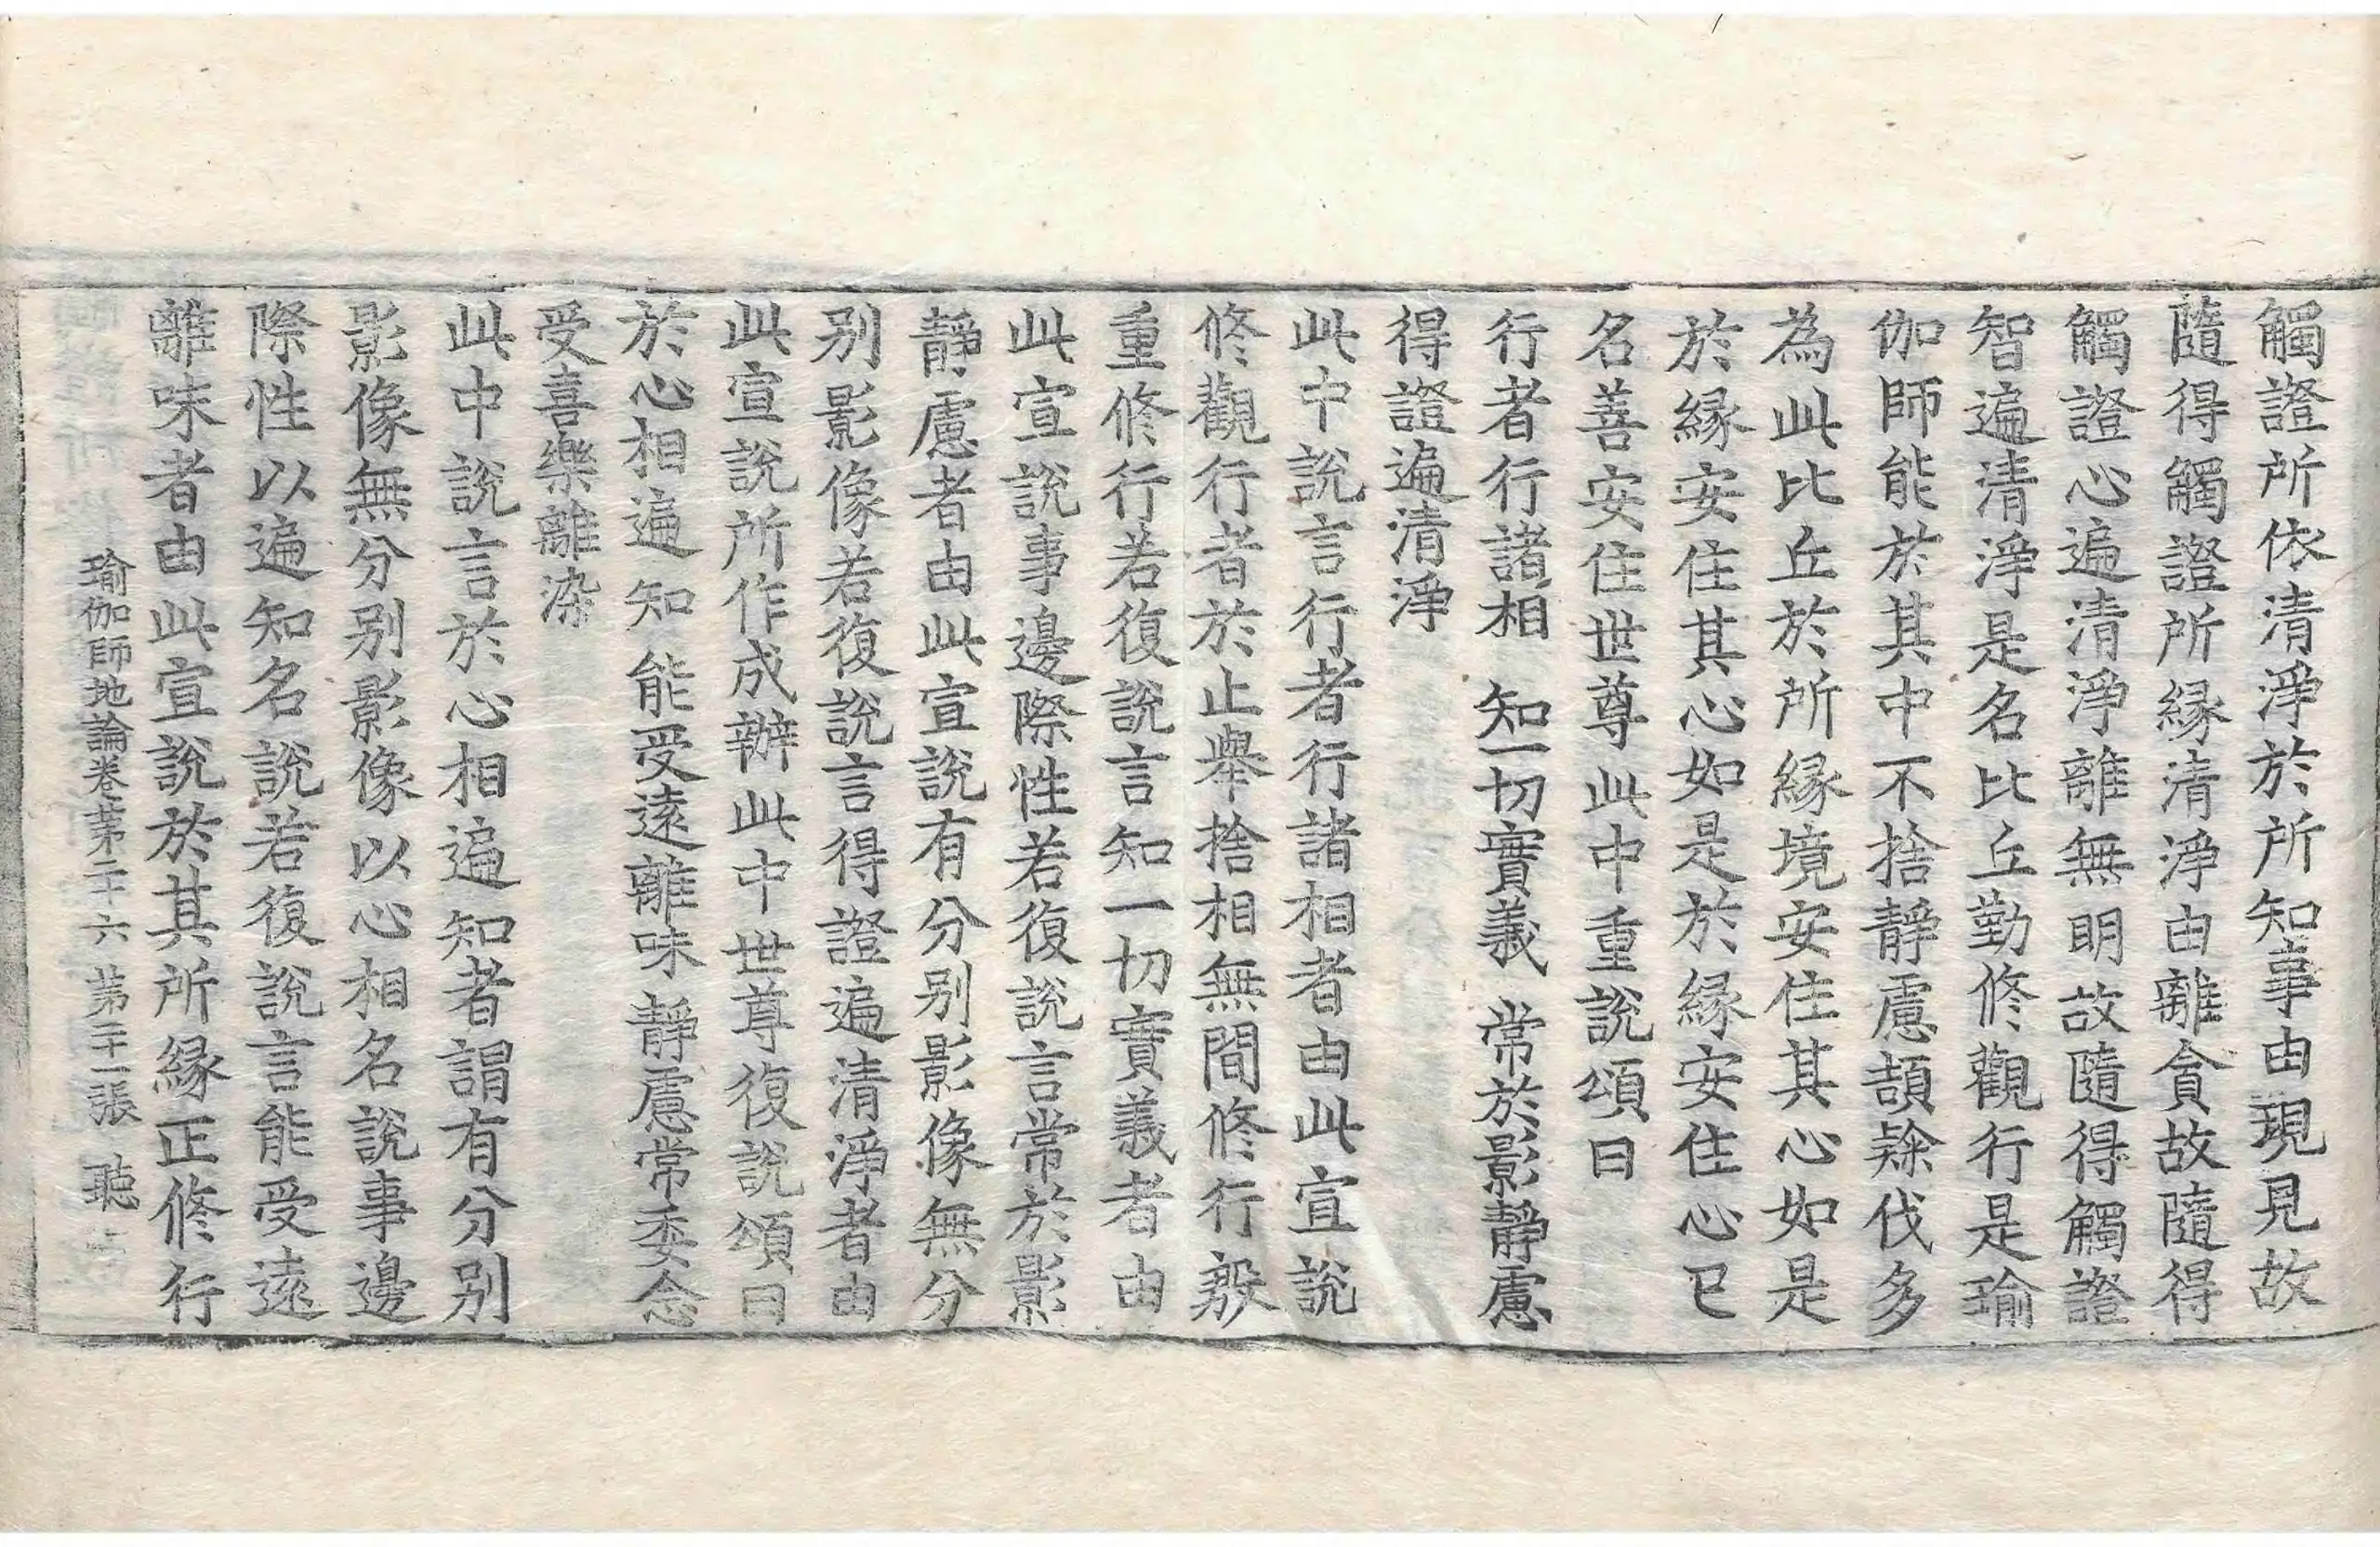 觸證所依清淨於所知事由現見故
隨得觸證所縁清淨由離貪故隨得
觸證心遍清淨離無明故隨得觸證
智遍清淨是名比丘勤修觀行是瑜
伽師能於其中不捨靜慮頡隸伐多
為此比丘於所縁境安住其心如是
於縁安住其心如是於縁安住心已
名善安住世尊此中重說頌曰
行者行諸相 知一切實義 常於影靜慮
得證遍清淨
此中說言行者行諸相者由此宣說
修觀行者於止舉捨相無間修行殷
重修行若復說言知一切實義者由
此宣說事邊際性若復說言常於影
靜慮者由此宣說有分别影像無分
别影像若復說言得證遍清淨者由
此宣說所作成辦此中世尊復說頌曰
於心相遍知 能受遠離味 靜慮常委念
受喜樂離染
此中說言於心相遍知者謂有分别
影像無分别影像以心相名說事邊
際性以遍知名說若復說言能受遠
離味者由此宣說於其所縁正修行
瑜伽師地論卷苐二十六 苐二十一張 聽